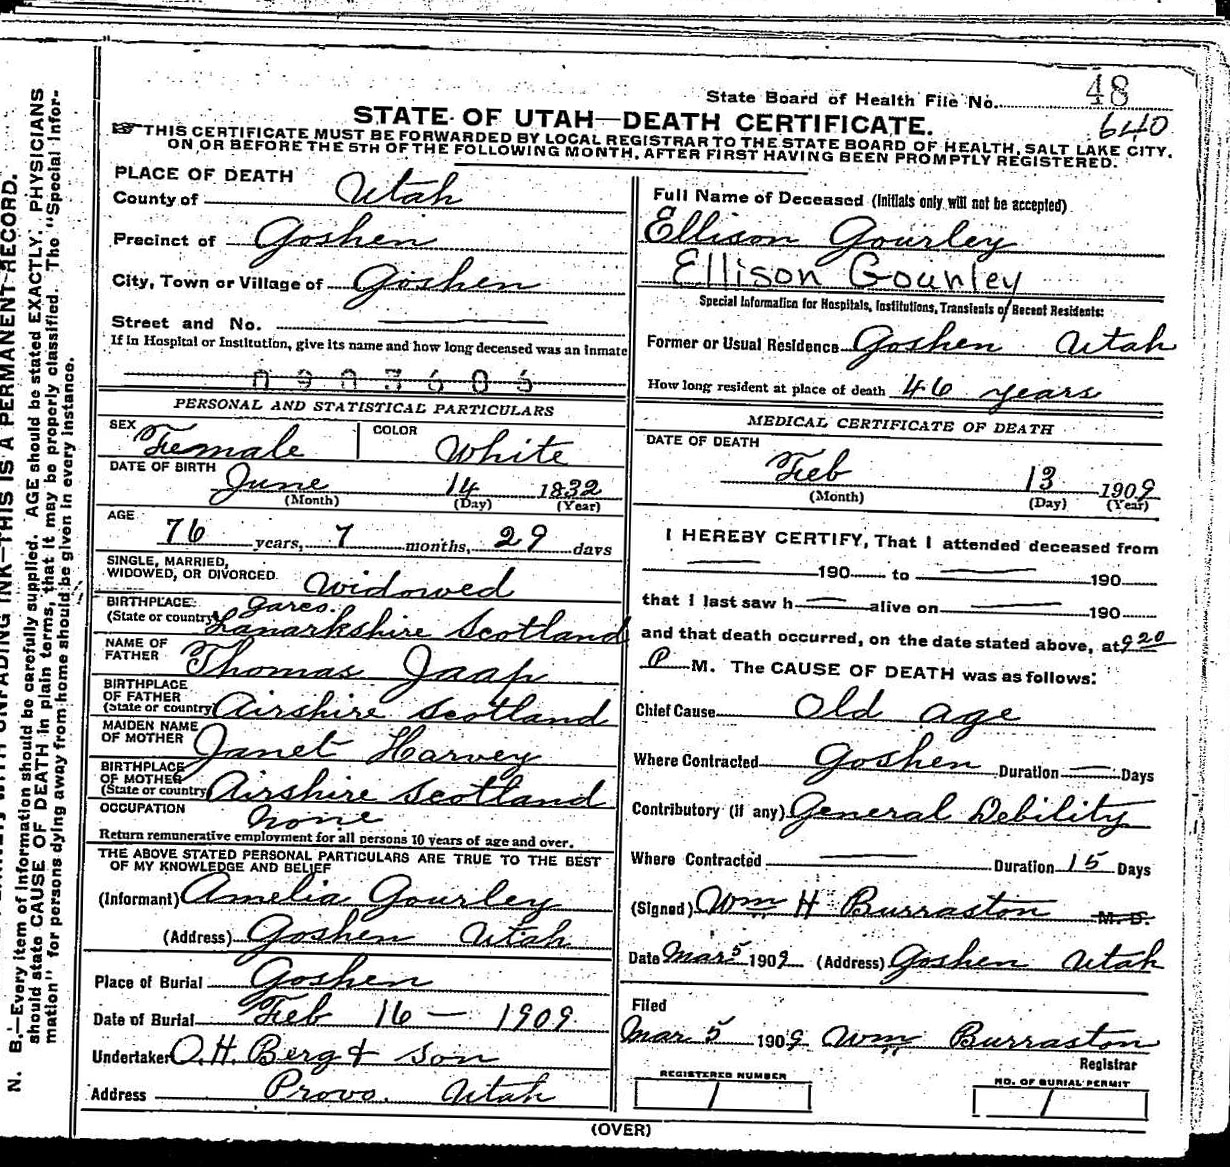 State Board of Health File No. 48
640
STATE OF UTAH—DEATH CERTIFICATE.
THIS CERTIFICATE MUST BE FORWARDED BY LOCAL REGISTRAR TO THE STATE BOARD OF HEALTH, SALT LAKE CITY,
ON OR BEFORE THE 5TH OF THE FOLLOWING MONTH, AFTER FIRST HAVING BEEN PROMPTLY REGISTERED.
PLACE OF DEATH
County of Utah
Precinct of Goshen
City, Town or Village of Goshen
Street and No.
If in Hospital or Institution, give its name and how long deceased was an inmate
PERSONAL AND STATISTICAL PARTICULARS
SEX Female COLOR White
DATE OF BIRTH June 14 1832
(Month) (Day) (Year)
AGE 76 years, 7 months, 29 days
SINGLE, MARRIED,
WIDOWED, OR DIVORCED. Widowed
BIRTHPLACE
(State or country) Lanarkshire Scotland
NAME OF
FATHER Thomas Jaap
BIRTHPLACE
OF FATHER
(State or country) Airshire Scotland
MAIDEN NAME
OF MOTHER Janet Harvey
BIRTHPLACE
OF MOTHER
(State or country) Airshire Scotland
OCCUPATION None
Return remunerative employment for all persons 10 years of age and over.
THE ABOVE STATED PERSONAL PARTICULARS ARE TRUE TO THE BEST
OF MY KNOWLEDGE AND BELIEF
(Informant) Amelia Gourley
(Address) Goshen Utah
Place of Burial Goshen
Date of Burial Feb 16 — 1909
Undertaker O.H. Berg & Son
Address Provo. Utah
Full Name of Deceased (Initials only will not be accepted)
Ellison Gourley
Ellison Gourley
Special Information for Hospitals, Institutions, Transients of Recent Residents:
Former or Usual Residence Goshen Utah
How long resident at place of death 46 years
MEDICAL CERTIFICATE OF DEATH
DATE OF DEATH
Feb 13 1909
(Month) (Day) (Year)
I HEREBY CERTIFY, That I attended deceased from
190 to 190
that I last saw h alive on 190
and that death occurred, on the date stated above, at 920
P M. The CAUSE OF DEATH was as follows:
Chief Cause Old age
Where Contracted Goshen Duration Days
Contributory (if any) General Debility
Where Contracted Duration 15 Days
(Signed) Wm H Burraston M. D.
Date Mar 5 1909 (Address) Goshen Utah
Filed
Mar 5 1909 Wm Burraston
Registrar
REGISTERED NUMBER
1
NO. OF BURIAL PERMIT
1
(OVER)
N. B.—Every item of information should be carefully supplied. AGE should be stated EXACTLY. PHYSICIANS
should state CAUSE OF DEATH in plain terms, that it may be properly classified. The "Special Infor-
mation" for persons dying away from home should be given in every instance.
UNFADING INK—THIS IS A PERMANENT RECORD.